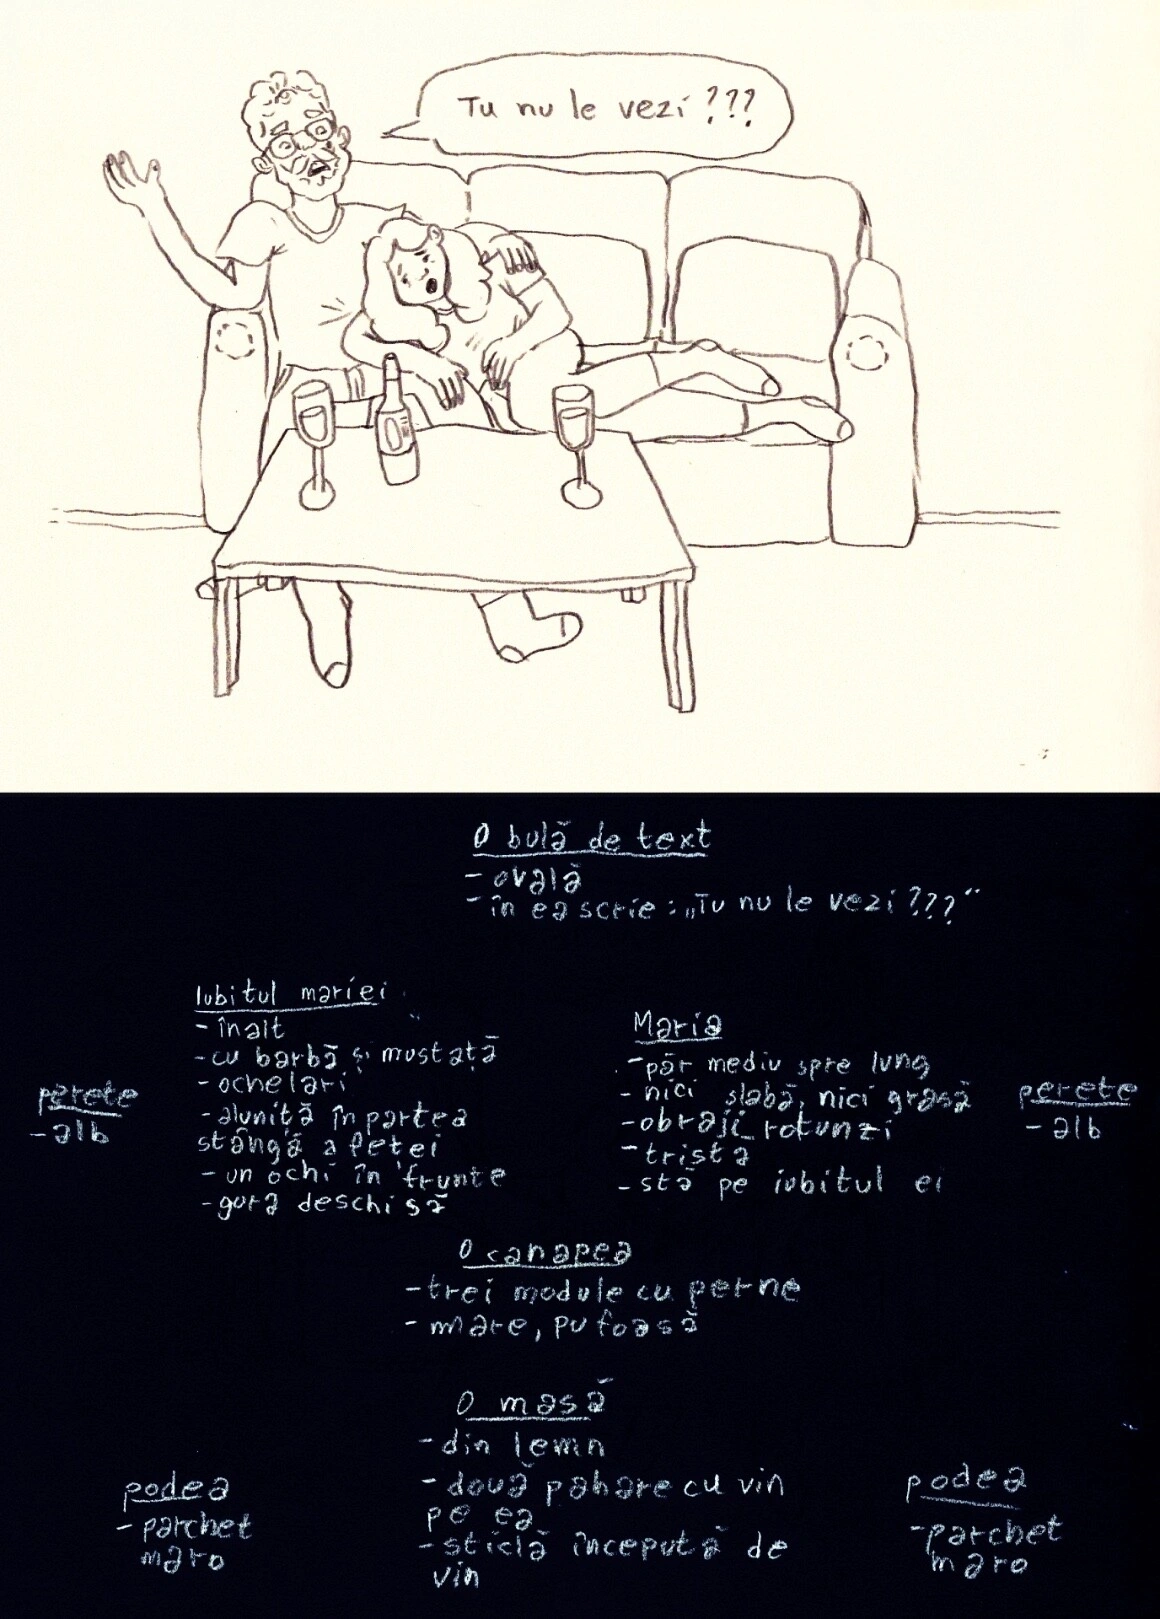 Tu nu le vezi ???
O bulă de text
- ovală
- în ea scrie : „Tu nu le vezi ???“
Iubitul mariei
- înalt
- cu barbă și mustață
- ochelari
- aluniță în partea
stângă a feței
- un ochi în frunte
- gura deschisă
Maria
- păr mediu spre lung
- nici slabă, nici grasă
- obraji rotunzi
- tristă
- stă pe iubitul ei
perete
- alb
perete
- alb
O canapea
- trei module cu perne
- mare, pufoasă
O masă
- din lemn
- două pahare cu vin
pe ea
- sticlă începută de
vin
podea
- parchet
maro
podea
- parchet
maro